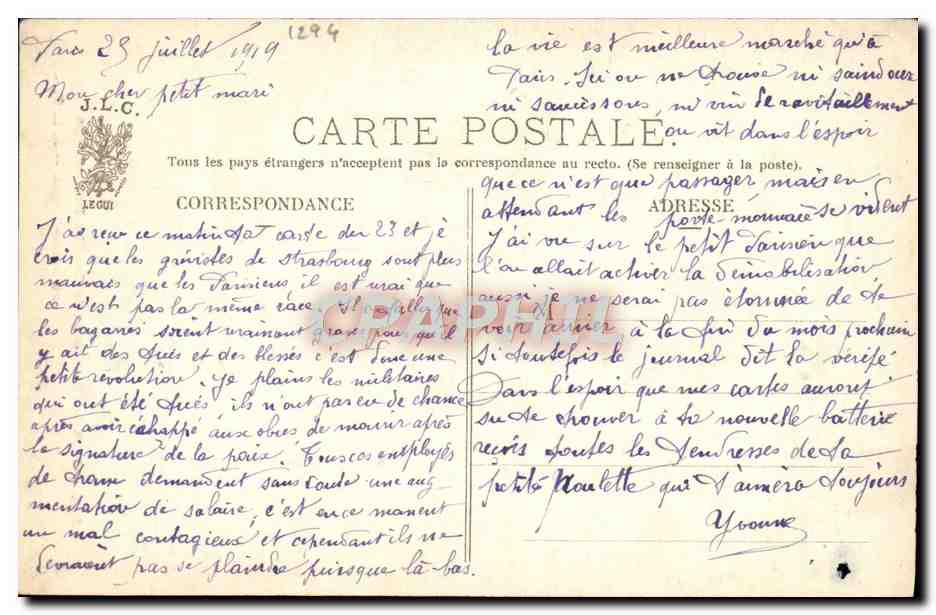 Paris 25 juillet 1919
1294
Mon cher petit mari
J.L.C.
LE GUI
CARTE POSTALE
Tous les pays étrangers n'acceptent pas la correspondance au recto. (Se renseigner à la poste).
CORRESPONDANCE
ADRESSE
J'ai reçu ce matin ta carte du 23 et je
crois que les grévistes de Strasbourg sont plus
mauvais que les Parisiens il est vrai que
ce n'est pas la même race. Il a fallu que
les bagarres soient vraiment graves pour qu'il
y ait des tués et des blessés c'est donc une
petite révolution. Je plains les militaires
qui ont été tués, ils n'ont pas eu de chance
après avoir échappé aux obus de mourir après
la signature de la paix. Tous ces employés
de trams demandent sans doute une aug
mentation de salaire, c'est en ce moment
un mal contagieux et cependant ils ne
devraient pas se plaindre puisque là-bas.
la vie est meilleure marché qu'à
Paris. Ici on ne trouve ni saindoux
ni saucissons, ni vin de ravitaillement
on vit dans l'espoir
que ce n'est que passager mais en
attendant les porte-monnaie se vident
J'ai vu sur le petit Parisien que
l'on allait activer la démobilisation
aussi je ne serai pas étonnée de te
voir arriver à la fin du mois prochain
si toutefois le journal dit la vérité
Dans l'espoir que mes cartes auront
su te trouver à ta nouvelle batterie
reçois toutes les tendresses de ta
petite Poulette qui t'aimera toujours
Yvonne
CPAPHIL